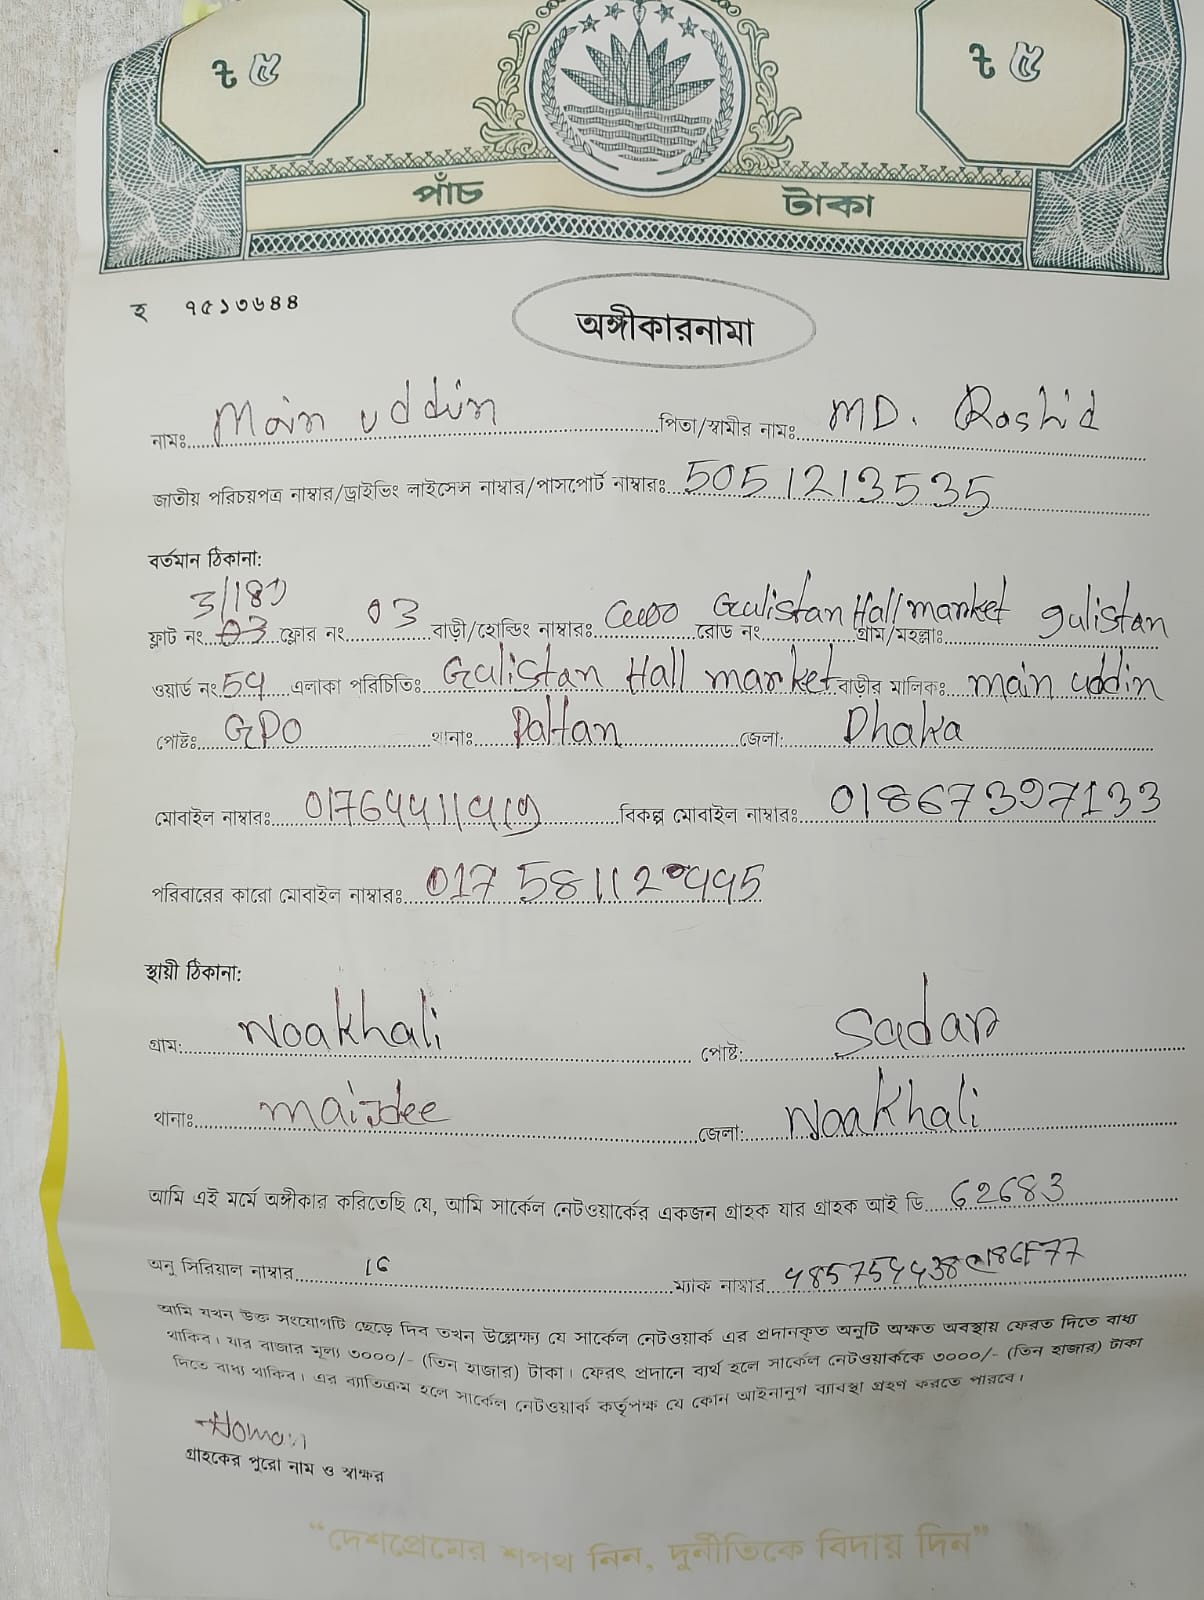 ট ৫ ট ৫
পাঁচ টাকা
হ ৭৫১৩৬৪৪
অঙ্গীকারনামা
নামঃ Main uddin পিতা/স্বামীর নামঃ MD. Rashid
জাতীয় পরিচয়পত্র নাম্বার/ড্রাইভিং লাইসেন্স নাম্বার/পাসপোর্ট নাম্বারঃ 5051213535
বর্তমান ঠিকানা:
3/181
ফ্লাট নং 03 ফ্লোর নং 03 বাড়ী/হোল্ডিং নাম্বারঃ রোড নং Gulistan Hall market গ্রাম/মহল্লাঃ gulistan
ওয়ার্ড নং 54 এলাকা পরিচিতিঃ Gulistan Hall market বাড়ীর মালিকঃ main uddin
পোষ্টঃ GPO থানাঃ Paltan জেলা: Dhaka
মোবাইল নাম্বারঃ বিকল্প মোবাইল নাম্বারঃ 01867397133
পরিবারের কারো মোবাইল নাম্বারঃ
স্থায়ী ঠিকানা:
গ্রাম: Noakhali পোষ্ট: Sadar
থানাঃ maijdee জেলা: Noakhali
আমি এই মর্মে অঙ্গীকার করিতেছি যে, আমি সার্কেল নেটওয়ার্কের একজন গ্রাহক যার গ্রাহক আই ডি 62683
অনু সিরিয়াল নাম্বার 16 ম্যাক নাম্বার
আমি যখন উক্ত সংযোগটি ছেড়ে দিব তখন উল্লেক্ষ্য যে সার্কেল নেটওয়ার্ক এর প্রদানকৃত অনুটি অক্ষত অবস্থায় ফেরত দিতে বাধ্য
থাকিব। যার বাজার মূল্য ৩০০০/- (তিন হাজার) টাকা। ফেরৎ প্রদানে ব্যর্থ হলে সার্কেল নেটওয়ার্ককে ৩০০০/- (তিন হাজার) টাকা
দিতে বাধ্য থাকিব। এর ব্যাতিক্রম হলে সার্কেল নেটওয়ার্ক কর্তৃপক্ষ যে কোন আইনানুগ ব্যাবস্থা গ্রহণ করতে পারবে।
Noman
গ্রাহকের পুরো নাম ও স্বাক্ষর
“দেশপ্রেমের শপথ নিন, দুর্নীতিকে বিদায় দিন”